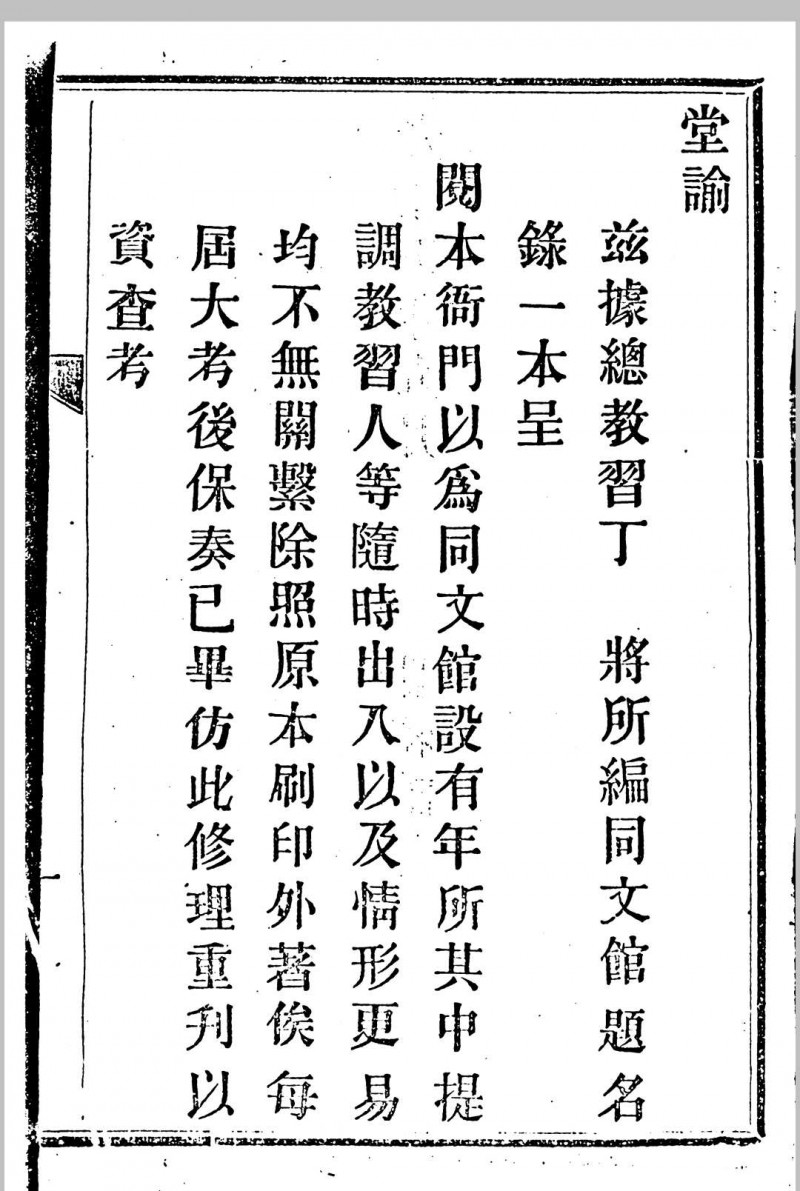 堂諭
茲據總教習丁　將所編同文館題名
錄一本呈
閱本衙門以爲同文館設有年所其中提
調教習人等隨時出入以及情形更易
均不無關繫除照原本刷印外著俟每
居大考後保奏已畢仿此修理重刋以
資查考